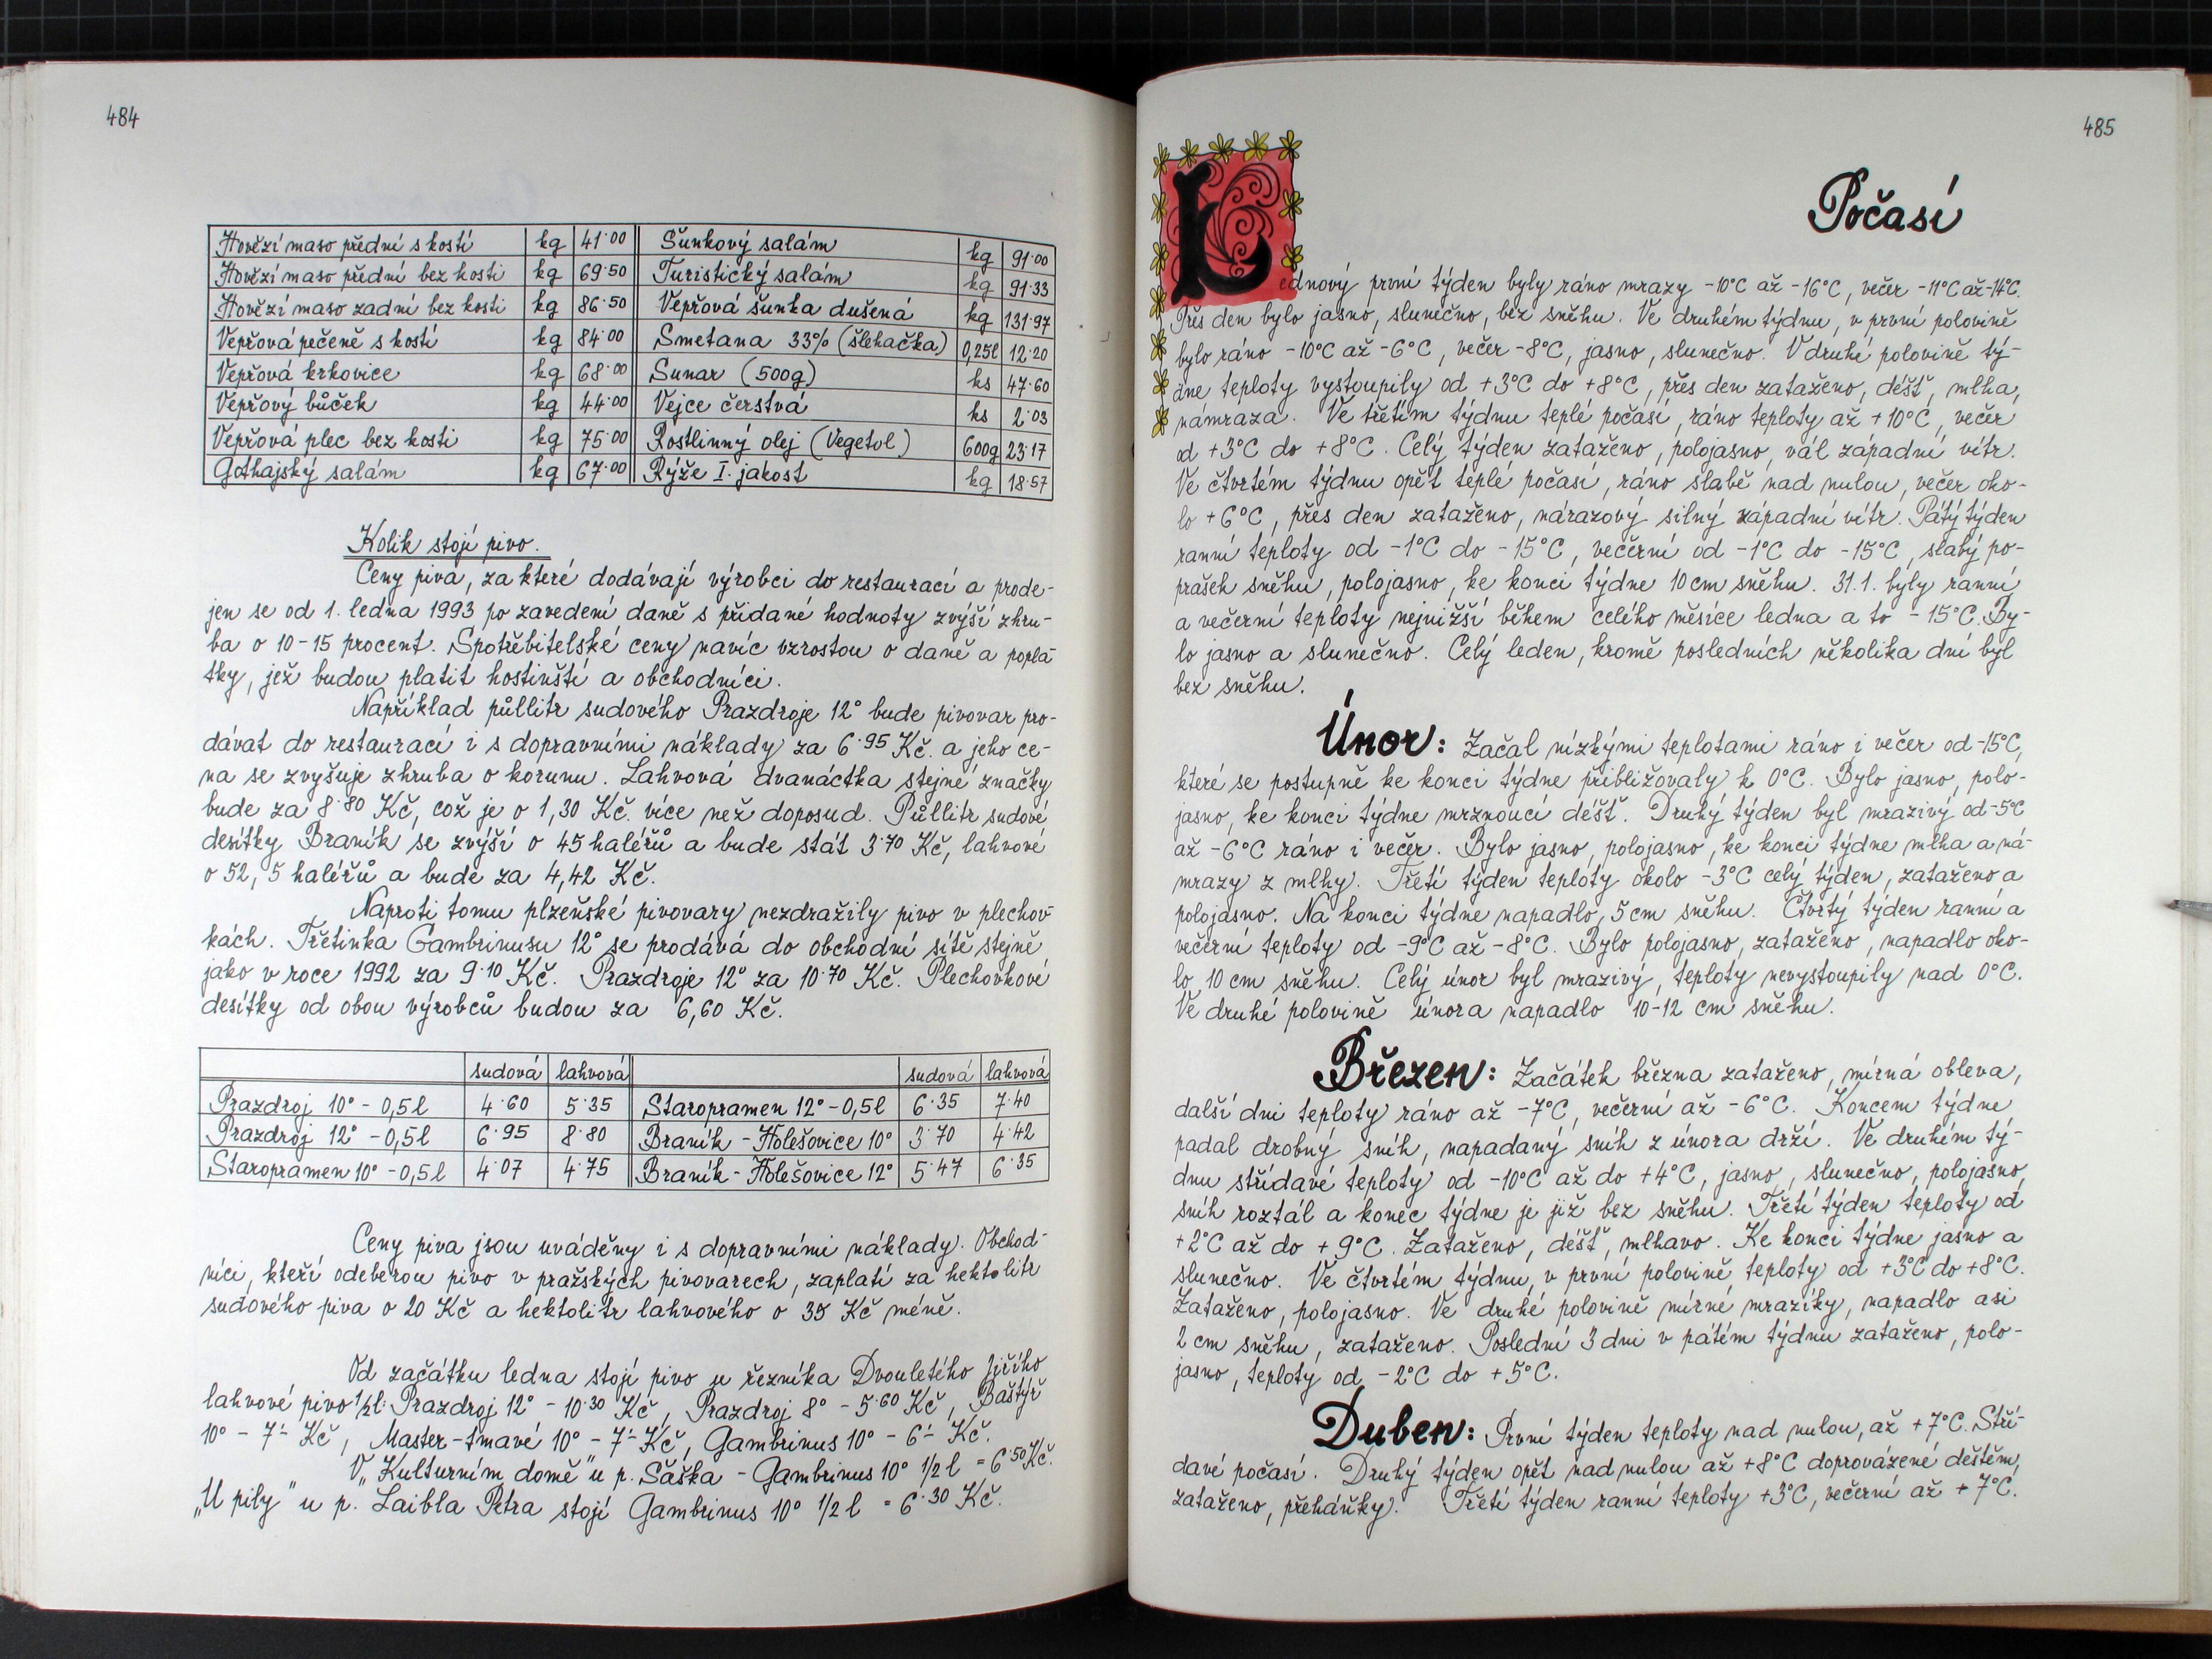 484
Hovězí maso přední s kostí kg 41·00 Šunkový salám kg 91·00
Hovězí maso přední bez kosti kg 69·50 Turistický salám kg 91·33
Hovězí maso zadní bez kosti kg 86·50 Vepřová šunka dušená kg 131·97
Vepřová pečeně s kostí kg 84·00 Smetana 33% (šlehačka) 0,25l 12·20
Vepřová krkovice kg 68·00 Sunar (500g) ks 47·60
Vepřový bůček kg 44·00 Vejce čerstvá ks 2·03
Vepřová plec bez kosti kg 75·00 Rostlinný olej (Vegetol) 600g 23·17
Gothajský salám kg 67·00 Rýže I. jakost kg 18·57
Kolik stojí pivo.
Ceny piva, za které dodávají výrobci do restaurací a prode-
jen se od 1. ledna 1993 po zavedení daně s přidané hodnoty zvýší zhru-
ba o 10-15 procent. Spotřebitelské ceny navíc vzrostou o daně a popla-
tky, jež budou platit hostinští a obchodníci.
Například půllitr sudového Prazdroje 12° bude pivovar pro-
dávat do restaurací i s dopravními náklady za 6·95 Kč. a jeho ce-
na se zvyšuje zhruba o korunu. Lahvová dvanáctka stejné značky
bude za 8·80 Kč, což je o 1,30 Kč. více než doposud. Půllitr sudové
desítky Braník se zvýší o 45 haléřů a bude stát 3·70 Kč, lahvové
o 52,5 haléřů a bude za 4,42 Kč.
Naproti tomu plzeňské pivovary nezdražily pivo v plechov-
kách. Třetinka Gambrinusu 12° se prodává do obchodní sítě stejně
jako v roce 1992 za 9·10 Kč. Prazdroje 12° za 10·70 Kč. Plechovkové
desítky od obou výrobců budou za 6,60 Kč.
sudová lahvová sudová lahvová
Prazdroj 10° - 0,5l 4·60 5·35 Staropramen 12° - 0,5l 6·35 7·40
Prazdroj 12° - 0,5l 6·95 8·80 Braník - Holešovice 10° 3·70 4·42
Staropramen 10° - 0,5l 4·07 4·75 Braník - Holešovice 12° 5·47 6·35
Ceny piva jsou uváděny i s dopravními náklady. Obchod-
níci, kteří odeberou pivo v pražských pivovarech, zaplatí za hektolitr
sudového piva o 20 Kč a hektolitr lahvového o 35 Kč méně.
Od začátku ledna stojí pivo u řezníka Dvouletého Jiřího
lahvové pivo 1/2l: Prazdroj 12° - 10·30 Kč, Prazdroj 8° - 5·60 Kč, Baštýř
10° - 7·- Kč, Master-tmavé 10° - 7·- Kč, Gambrinus 10° - 6·- Kč.
V „Kulturním domě" u p. Šáška - Gambrinus 10° 1/2 l = 6·50 Kč.
„U pily" u p. Laibla Petra stojí Gambrinus 10° 1/2 l = 6·30 Kč.
485
Počasí
Lednový první týden byly ráno mrazy -10°C až -16°C, večer -11°C až -14°C.
Přes den bylo jasno, slunečno, bez sněhu. Ve druhém týdnu, v první polovině
bylo ráno -10°C až -6°C, večer -8°C, jasno, slunečno. V druhé polovině tý-
dne teploty vystoupily od +3°C do +8°C, přes den zataženo, déšť, mlha,
námraza. Ve třetím týdnu teplé počasí, ráno teploty až +10°C, večer
od +3°C do +8°C. Celý týden zataženo, polojasno, vál západní vítr.
Ve čtvrtém týdnu opět teplé počasí, ráno slabě nad nulou, večer oko-
lo +6°C, přes den zataženo, nárazový silný západní vítr. Pátý týden
ranní teploty od -1°C do -15°C, večerní od -1°C do -15°C, slabý po-
prašek sněhu, polojasno, ke konci týdne 10 cm sněhu. 31.1. byly ranní
a večerní teploty nejnižší během celého měsíce ledna a to -15°C. By-
lo jasno a slunečno. Celý leden, kromě posledních několika dní byl
bez sněhu.
Únor: Začal nízkými teplotami ráno i večer od -15°C,
které se postupně ke konci týdne přibližovaly k 0°C. Bylo jasno, polo-
jasno, ke konci týdne mrznoucí déšť. Druhý týden byl mrazivý od -5°C
až -6°C ráno i večer. Bylo jasno, polojasno, ke konci týdne mlha a ná-
mrazy z mlhy. Třetí týden teploty okolo -3°C celý týden, zataženo a
polojasno. Na konci týdne napadlo 5 cm sněhu. Čtvrtý týden ranní a
večerní teploty od -9°C až -8°C. Bylo polojasno, zataženo, napadlo oko-
lo 10 cm sněhu. Celý únor byl mrazivý, teploty nevystoupily nad 0°C.
Ve druhé polovině února napadlo 10-12 cm sněhu.
Březen: Začátek března zataženo, mírná obleva,
další dni teploty ráno až -7°C, večerní až -6°C. Koncem týdne
padal drobný sníh, napadaný sníh z února drží. Ve druhém tý-
dnu střídavé teploty od -10°C až do +4°C, jasno, slunečno, polojasno,
sníh roztál a konec týdne je již bez sněhu. Třetí týden teploty od
+2°C až do +9°C. Zataženo, déšť, mlhavo. Ke konci týdne jasno a
slunečno. Ve čtvrtém týdnu, v první polovině teploty od +3°C do +8°C.
Zataženo, polojasno. Ve druhé polovině mírné mrazíky, napadlo asi
2 cm sněhu, zataženo. Poslední 3 dni v pátém týdnu zataženo, polo-
jasno, teploty od -2°C do +5°C.
Duben: První týden teploty nad nulou, až +7°C. Stří-
davé počasí. Druhý týden opět nad nulou až +8°C doprovázené deštěm,
zataženo, přeháňky. Třetí týden ranní teploty +3°C, večerní až +7°C.